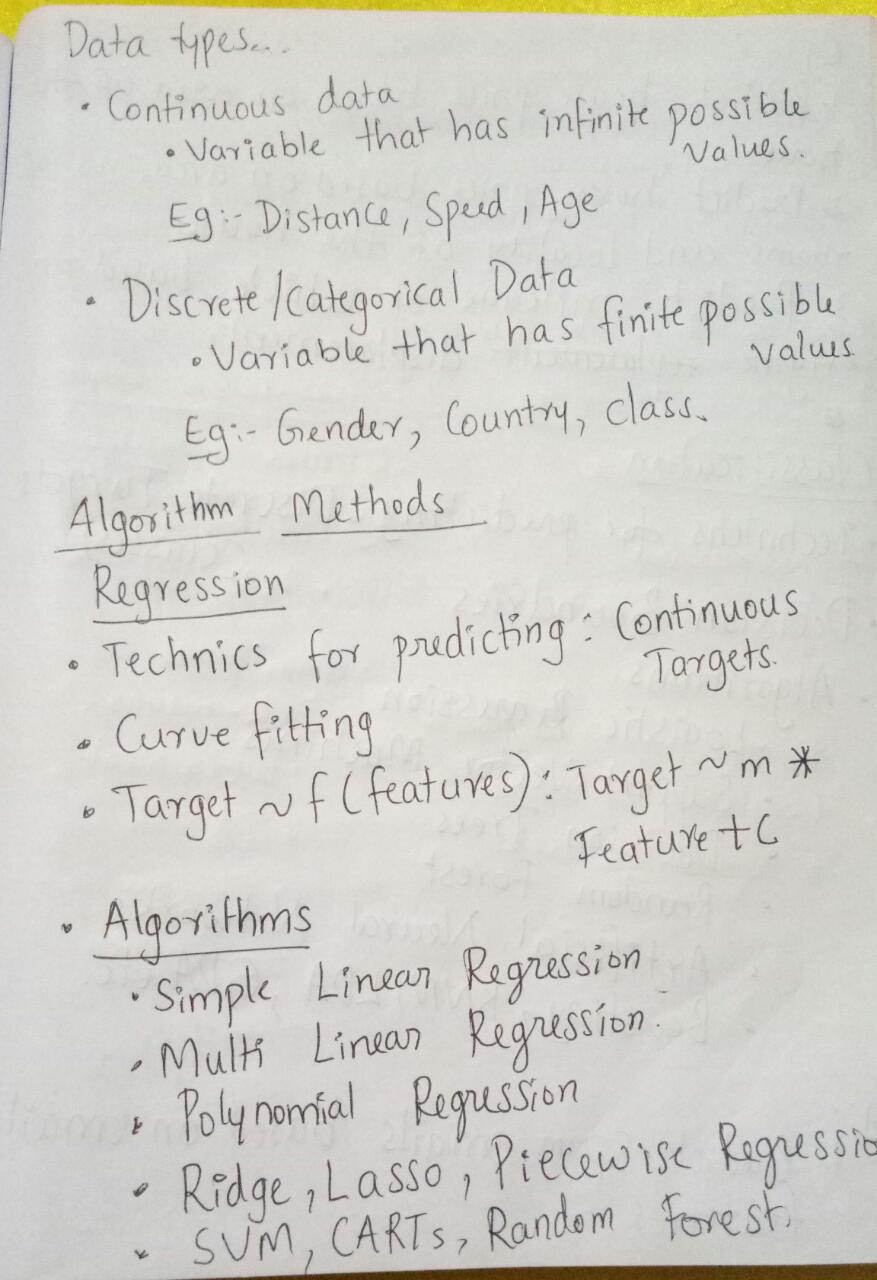 Data types...
• Continuous data
• Variable that has infinite possible
values.
Eg:- Distance, Speed, Age
• Discrete/Categorical Data
• Variable that has finite possible
values
Eg:- Gender, Country, class.
Algorithm Methods
Regression
• Technics for predicting: Continuous
Targets.
• Curve fitting
• Target ~ f (features): Target ~ m *
Feature + C
• Algorithms
• Simple Linear Regression
• Multi Linear Regression.
• Polynomial Regression
• Ridge, Lasso, Piecewise Regressio
• SVM, CARTs, Random Forest.